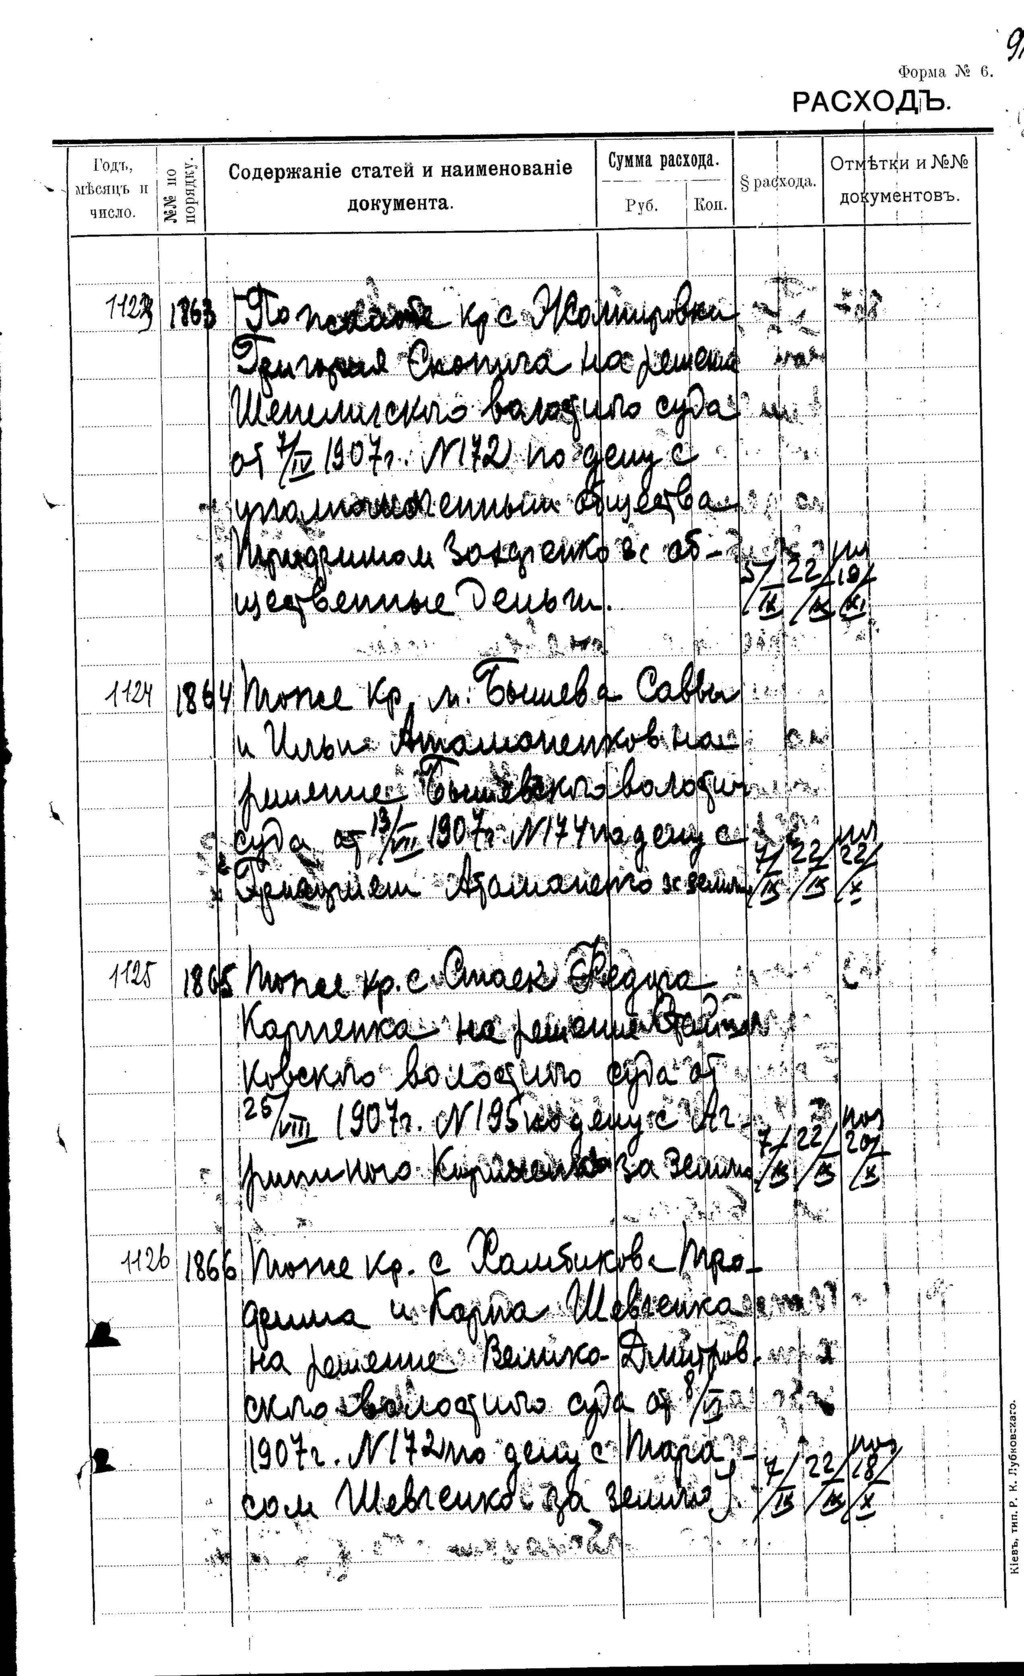 Форма № 6.
РАСХОДЪ.
Годъ, мѣсяцъ и число.
№№ по порядку.
Содержаніе статей и наименованіе документа.
Сумма расхода.
Руб.
Коп.
§ расхода.
Отмѣтки и №№ документовъ.
1123 1863 По жалобе кр с
Григория на решение
волостного суда
от 7/IV 1907г. N172 по делу с
уполномоченным общества
за об-
щественные деньги. 5/IX 22/IX 19/XI
1124 1864 Тоже кр. м. Бышева Саввы
и Ильи Атаманенков на
решение Бышевского волостн
суда от 13/VII 1907г. N174 по делу с
Атаманенко за землю 7/IX 22/IX 22/X
1125 1865 Тоже кр. с. Стаек Федора
Карпенка на решение Стай-
ковского волостного суда от
25/VIII 1907г. N195 по делу с
за землю 7/IX 22/IX 20/X
1126 1866 Тоже кр. с
и Карпа Шевченка
на решение Велико-Дмитров
ского волостного суда от 8/VI
1907г. N172 по делу с Тара-
сом Шевченко за землю 7/IX 22/IX 18/X
Кіевъ, тип. Р. К. Лубковскаго.